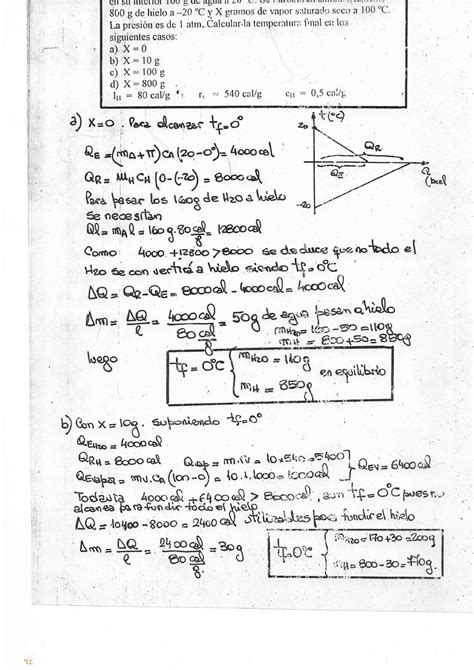 800 g de hielo a –20 ºC y X gramos de vapor saturado seco a 100 ºC.
La presión es de 1 atm. Calcular la temperatura final en los
siguientes casos:
a) X = 0
b) X = 10 g
c) X = 100 g
d) X = 800 g
= 80 cal/g = 540 cal/g = 0,5 cal/g
a) X=0. Para alcanzar tf=0°
t(ºC)
20
QR
QE
-20
QE = (mA+π)CA(20-0°)=4000 cal
QR = MH CH (0-(-20)=8000cal
Para pasar los 160g de H2O a hielo
se necesitan
Ql = mA l = 160g.80 cal/g = 12800 cal
Como 4000 +12800 >8000 se deduce que no todo el
H2O se convertirá a hielo siendo tf=0ºC
ΔQ = QR-QE = 8000cal - 4000cal = 4000cal
Δm = ΔQ/l = 4000cal/80 cal/g = 50g de agua pasan a hielo
mH2O = 160-50=110g
mH = 800+50=850g
luego
tf=0ºC { mH2O = 110g mH = 850g en equilibrio
b) Con X=10g. Suponiendo tf=0°
QEH2O = 4000cal
QRH = 8000cal
= 10x540=5400
= mv.CA(100-0) = 10.1.1000=1000cal } QEV=6400cal
Todavía 4000cal+6400cal > 8000cal, aun tf=0ºC pues no
alcanza para fundir todo el hielo
ΔQ = 10400-8000 = 2400 cal utilizables para fundir el hielo
Δm = ΔQ/l = 2400cal/80 cal/g = 30g
tf=0ºC { mH2O=170+30=200g mH=800-30=770g.